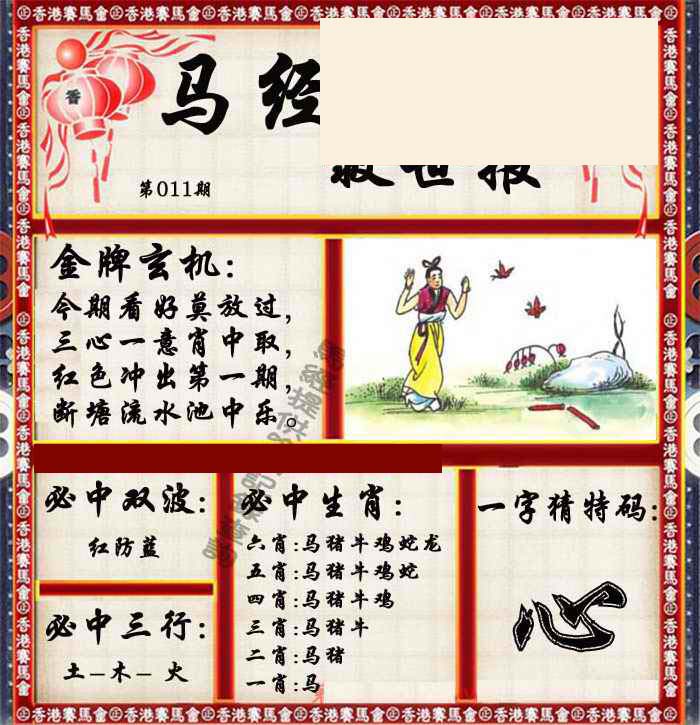 香港賽馬會
香
马经
救世报
第011期
金牌玄机：
今期看好莫放过，
三心一意肖中取，
红色冲出第一期，
断塘流水池中乐。
必中双波：
红防蓝
必中三行：
土－木－火
必中生肖：
六肖：马猪牛鸡蛇龙
五肖：马猪牛鸡蛇
四肖：马猪牛鸡
三肖：马猪牛
二肖：马猪
一肖：马
一字猜特码：
心